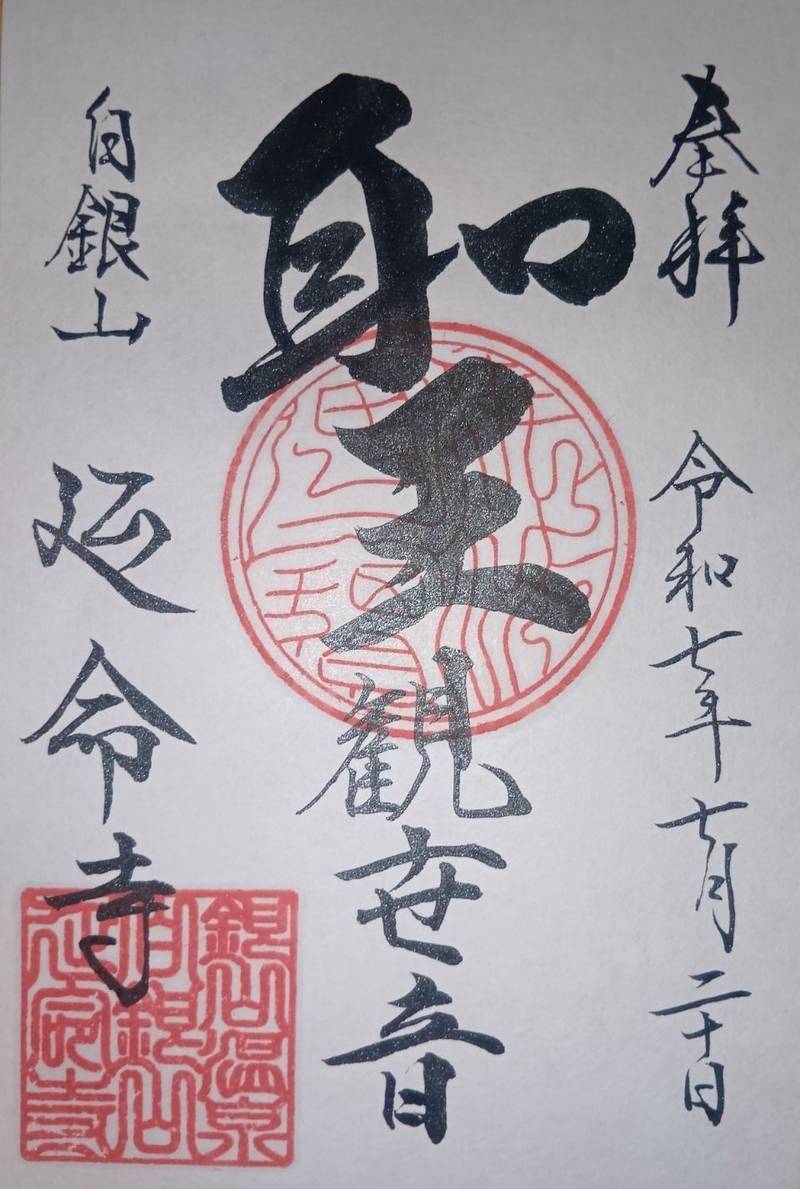 奉拝
令和七年七月二十日
聖観世音
白銀山
延命寺
銀山温泉
白銀山
延命寺